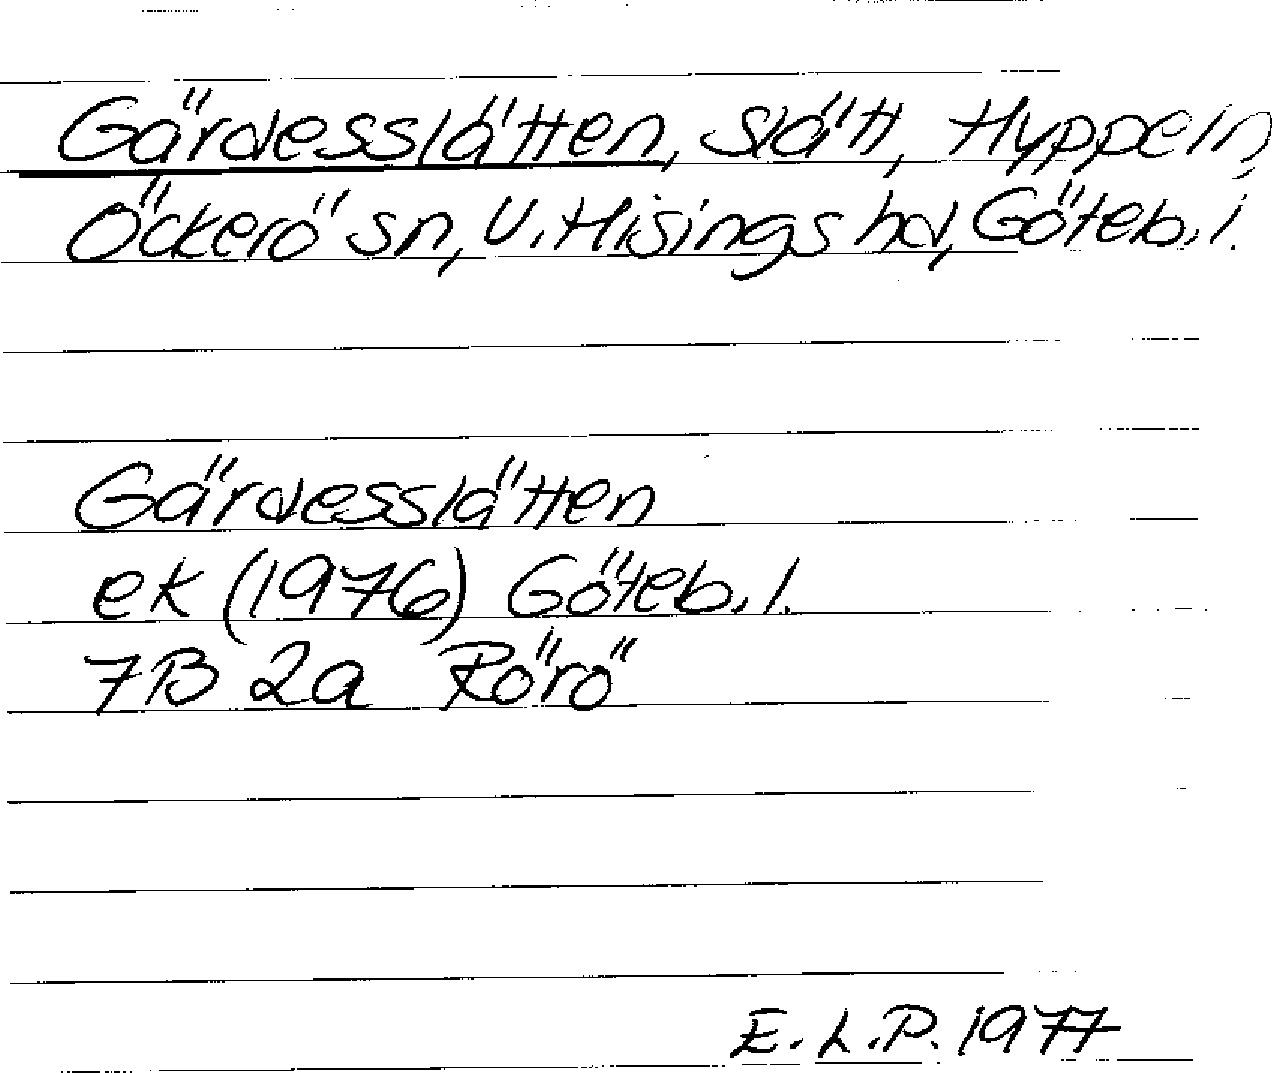 Gärdesslätten, slätt, Hyppeln,
Öckerö sn, V. Hisings hd, Göteb. l.
Gärdesslätten
ek (1976) Göteb. l.
7B 2a Rörö
E. L. P. 1977